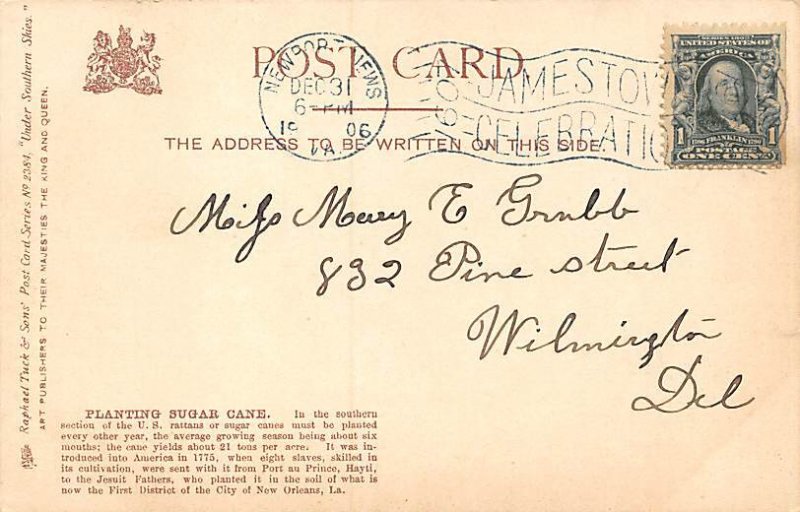 POST CARD
NEWPORT NEWS
DEC 31
6-PM
19 06
VA.
1907
JAMESTOW
CELEBRATIO
SERIES 1902
UNITED STATES OF
FRANKLIN
1 1
ONE CENT
THE ADDRESS TO BE WRITTEN ON THIS SIDE
Miss Mary E Grubb
832 Pine street
Wilmington
Del
Raphael Tuck & Sons' Post Card Series No 2384. "Under Southern Skies."
ART PUBLISHERS TO THEIR MAJESTIES THE KING AND QUEEN.
PLANTING SUGAR CANE. In the southern
section of the U.S. rattans or sugar canes must be planted
every other year, the average growing season being about six
months; the cane yields about 21 tons per acre. It was in-
troduced into America in 1775, when eight slaves, skilled in
its cultivation, were sent with it from Port au Prince, Hayti,
to the Jesuit Fathers, who planted it in the soil of what is
now the First District of the City of New Orleans, La.